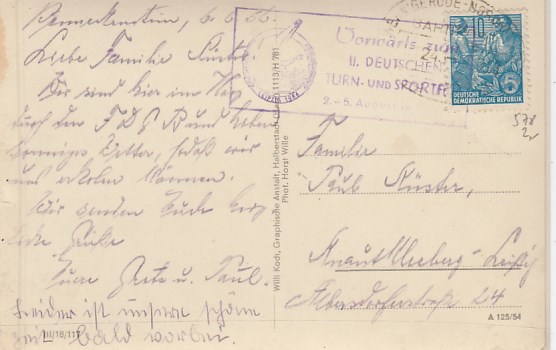 Benneckenstein, 6.6.56.
Liebe Familie Küster!
Wir sind hier im Harz
durch den F D G B und haben
sonniges Wetter, sodaß wir
uns erholen können.
Wir senden Euch herz
liche Grüße
Eure Grete u. Paul.
Leider ist unsere schöne
Zeit bald vorbei.
III/18/117
Vorwärts zum
II. DEUTSCHEN
TURN- UND SPORTF
2.-5. August
LEIPZIG
10
DEUTSCHE
DEMOKRATISCHE REPUBLIK
578
Familie
Paul Küster,
Knautkleeberg-Leipzig
Albersdorferstraße 24
Willi Koch, Graphische Anstalt, Halberstadt 1113/H 761
Phot. Horst Wille
A 125/54